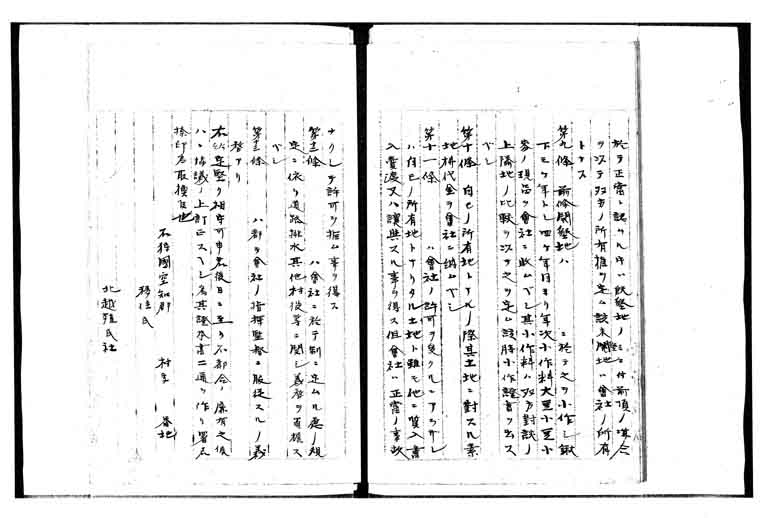 於テ正當ト認ムル片ハ既墾地ノミニ付前項ノ場合
ヲ以テ双方ノ所有権ヲ定ム該未開地ハ會社ノ所有
トナス
第九條 前條開墾地ハ ニ於テ之ヲ小作シ鍬
下三ケ年トシ四ケ年目ヨリ年次小作料大豆小豆小
麦ノ現品ヲ會社ニ収ムベシ其小作料ハ双方對談ノ
上隣地ノ比較ヲ以テ之ヲ定ム該時小作證書ヲ出ス
ベシ
第十條 自己ノ所有地トナルノ際其土地ニ對スル素
地料代金ヲ會社ニ納ムベシ
第十一條 ハ會社ノ許可ヲ受クルニアラザレ
ハ自己ノ所有地トナリタル土地ト雖モ他ニ質入書
入賣渡又ハ讓與スル事ヲ得ス但會社ハ正當ノ事故
ナクシテ許可ヲ拒ム事ヲ得ス
第十二條 ハ會社ニ於テ別ニ定ムル處ノ規
定ニ依リ道路排水其他村役等ニ関シ義務ヲ負担ス
ベシ
第十三條 ハ都テ會社ノ指揮監督ニ服従スルノ義
務アリ
右約定堅ク相守可申若後日ニ至リ不都合ノ廉有之候
ハヽ協議ノ上訂正スベシ為其證本書二通ヲ作リ署名
捺印為取換置也
石狩國空知郡 村字 番地
移住民
北越殖民社